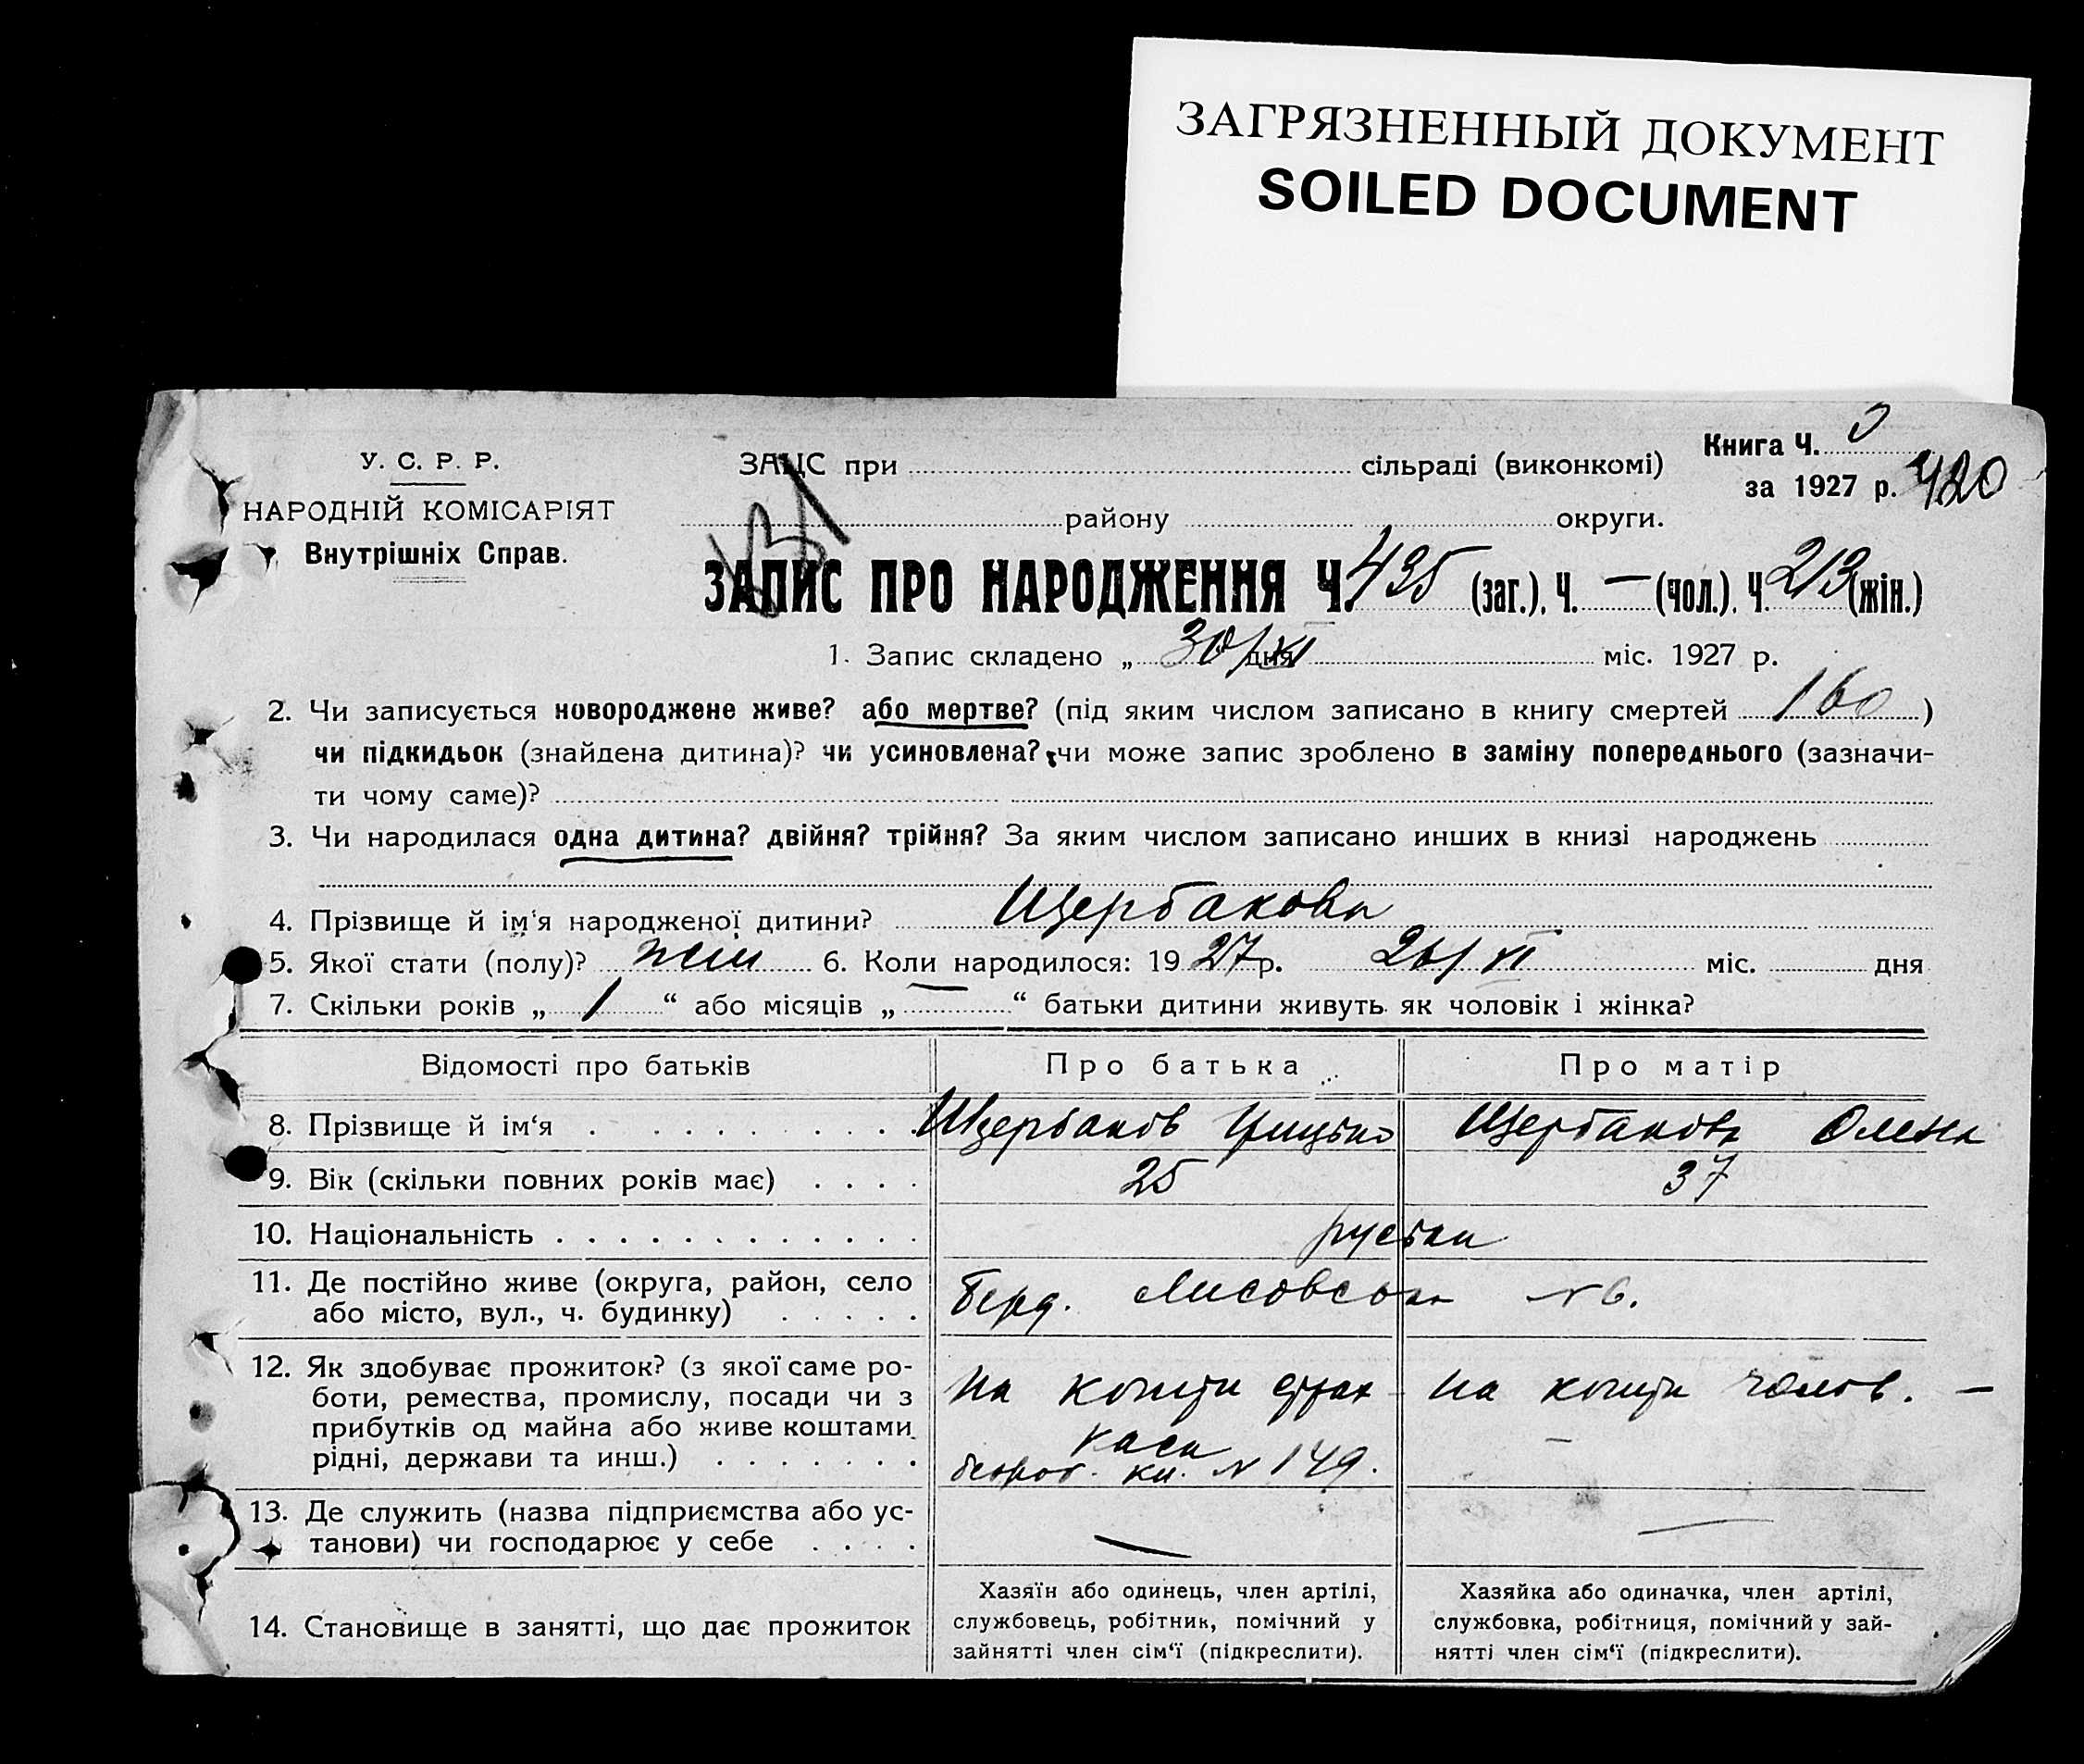 ЗАГРЯЗНЕННЫЙ ДОКУМЕНТ
SOILED DOCUMENT
У. С. Р. Р.
НАРОДНІЙ КОМІСАРІЯТ
Внутрішніх Справ.
ЗАЦС при сільраді (виконкомі)
Книга Ч.
за 1927 р. 420
району округи.
ЗАПИС ПРО НАРОДЖЕННЯ Ч. 435 (заг.), Ч. — (чол.), Ч. 213 (жін.)
1. Запис складено „ 30/XI дня міс. 1927 р.
2. Чи записується новороджене живе? або мертве? (під яким числом записано в книгу смертей 160 )
чи підкидьок (знайдена дитина)? чи усиновлена? чи може запис зроблено в заміну попереднього (зазначи-
ти чому саме)?
3. Чи народилася одна дитина? двійня? трійня? За яким числом записано инших в книзі народжень
4. Прізвище й ім‘я народженої дитини? Щербакова
5. Якої стати (полу)? жін 6. Коли народилося: 19 27 р. 26/XI міс. дня
7. Скільки років „ 1 “ або місяців „ “ батьки дитини живуть як чоловік і жінка?
Відомості про батьків Про батька Про матір
8. Прізвище й ім‘я Щербаков Грицько Щербакова Олена
9. Вік (скільки повних років має) 25 37
10. Національність руськи
11. Де постійно живе (округа, район, село Берд. Лисовська N 6.
або місто, вул., ч. будинку)
12. Як здобуває прожиток? (з якої саме ро-
боти, ремества, промислу, посади чи з На кошти страх На кошти чолов. —
прибутків од майна або живе коштами каси
рідні, держави та инш.) безроб. кн. N 149.
13. Де служить (назва підприємства або ус-
танови) чи господарює у себе — —
Хазяїн або одинець, член артілі, Хазяйка або одиначка, член артілі,
14. Становище в занятті, що дає прожиток службовець, робітник, помічний у службовка, робітниця, помічний у зай-
зайнятті член сім‘ї (підкреслити). нятті член сім‘ї (підкреслити).